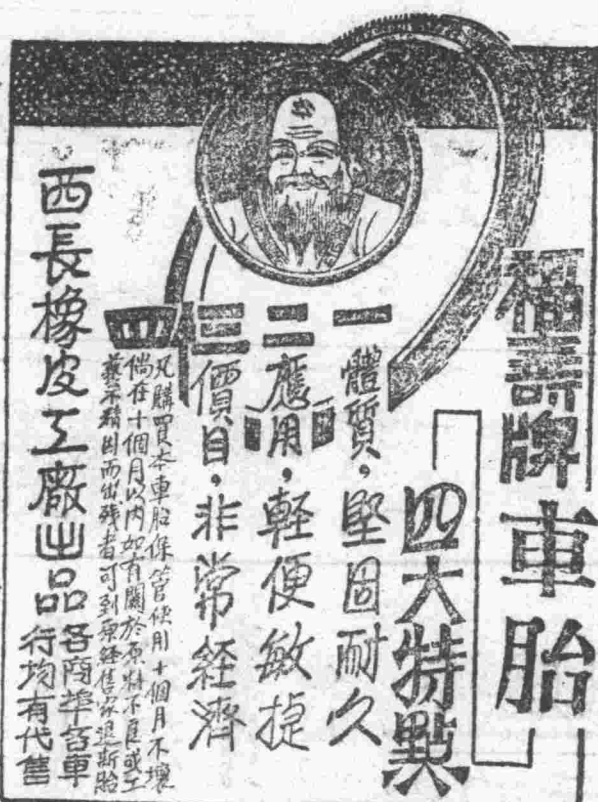 福壽牌車胎
四大特點
一 體質，堅固耐久
二 應用，軽便敏捷
三 價目，非常経濟
四 凡購買本車胎保管使用十個月不壞
倘在十個月以内如有關於原料不良或工
藝不精因而出残者可到原經售家退斷胎
西長橡皮工廠出品
各商埠各車
行均有代售